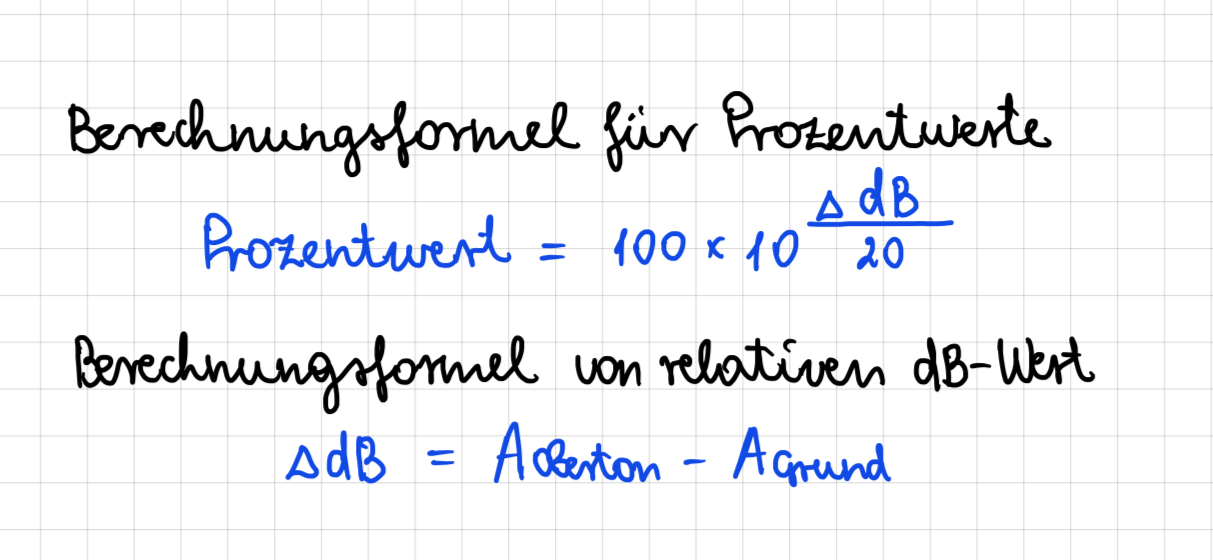 Berechnungsformel für Prozentwerte
Prozentwert = 100 × 10^(Δ dB / 20)
Berechnungsformel von relativen dB-Wert
ΔdB = A Oberton - A Grund